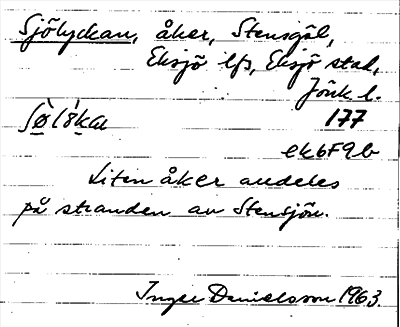 Sjölyckan, åker, Stensgöl,
Eksjö lfs, Eksjö stad,
Jönk l.
177
ek6F9b
Liten åker alldeles
på stranden av Stensjön.
Inger Danielsson 1963.